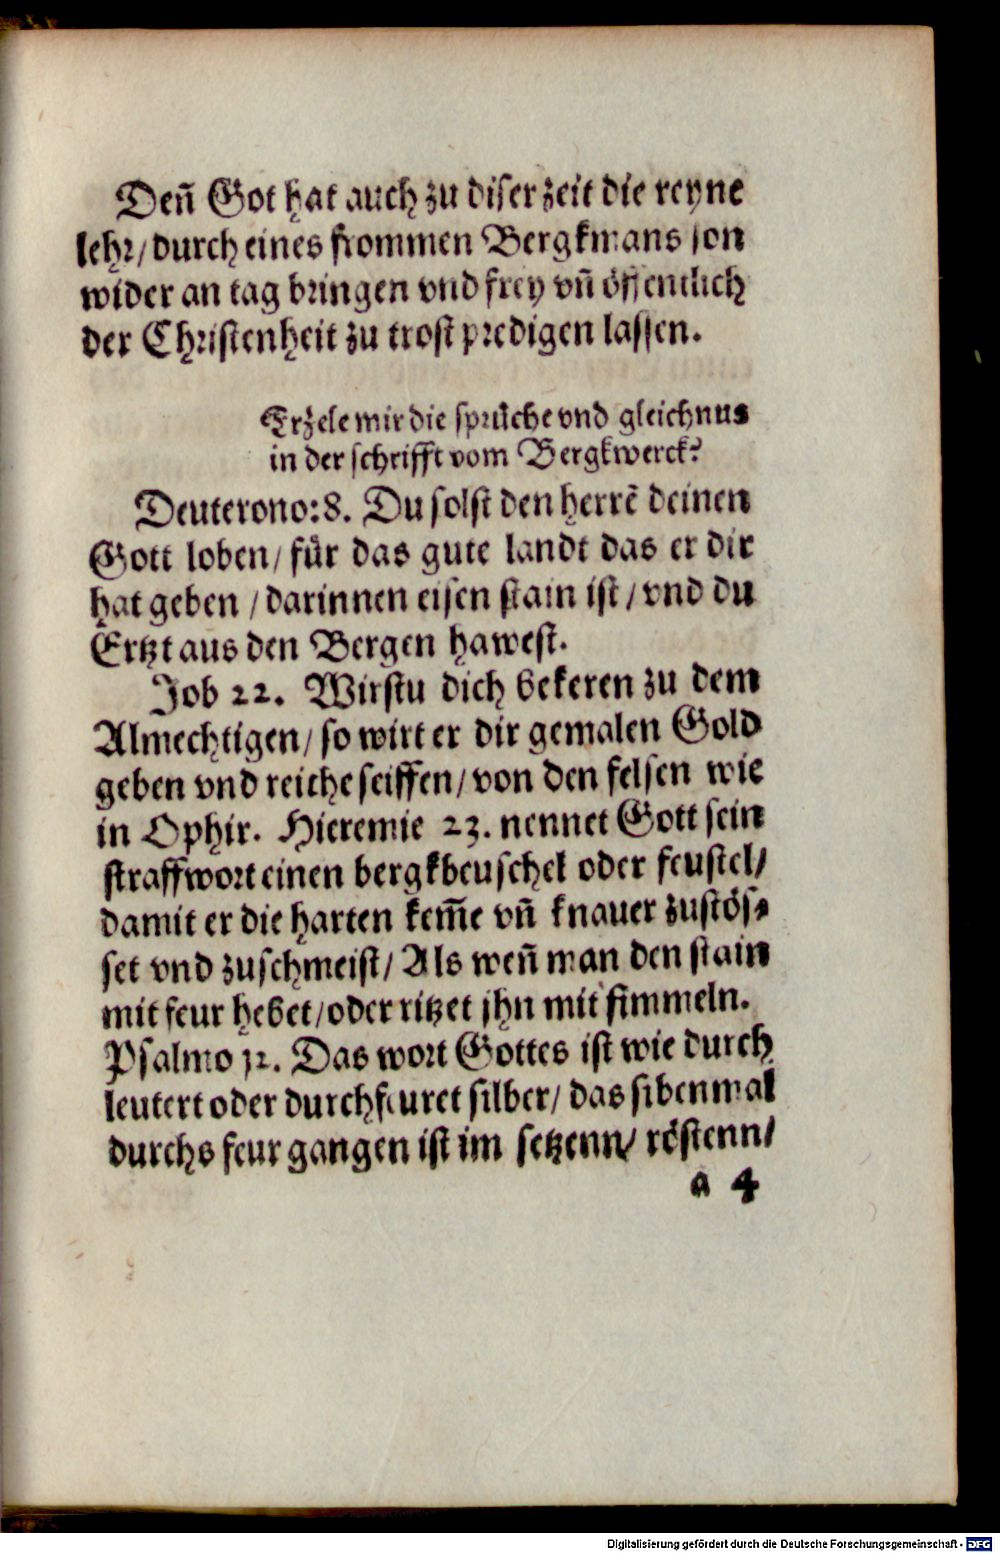 Deñ Got hat auch zu diser zeit die reyne
lehr/ durch eines frommen Bergkmans son
wider an tag bringen vnd frey vñ öffentlich
der Christenheit zu trost predigen lassen.
Erzele mir die sprüche vnd gleichnus
in der schrifft vom Bergkwerck?
Deuterono: 8. Du solst den herrē deinen
Gott loben/ für das gute landt das er dir
hat geben / darinnen eisen stain ist / vnd du
Ertzt aus den Bergen hawest.
Job 22. Wirstu dich bekeren zu dem
Almechtigen/ so wirt er dir gemalen Gold
geben vnd reiche seiffen/ von den felsen wie
in Ophir. Hieremie 23. nennet Gott sein
straffwort einen bergkbeuschel oder feustel/
damit er die harten kem̃e vñ knauer zustös⸗
set vnd zuschmeist/ Als weñ man den stain
mit feur hebet/ oder ritzet jhn mit fimmeln.
Psalmo 12. Das wort Gottes ist wie durch
leutert oder durchfeuret silber/ das sibenmal
durchs feur gangen ist im setzenn/ röstenn/
a 4
Digitalisierung gefördert durch die Deutsche Forschungsgemeinschaft - DFG